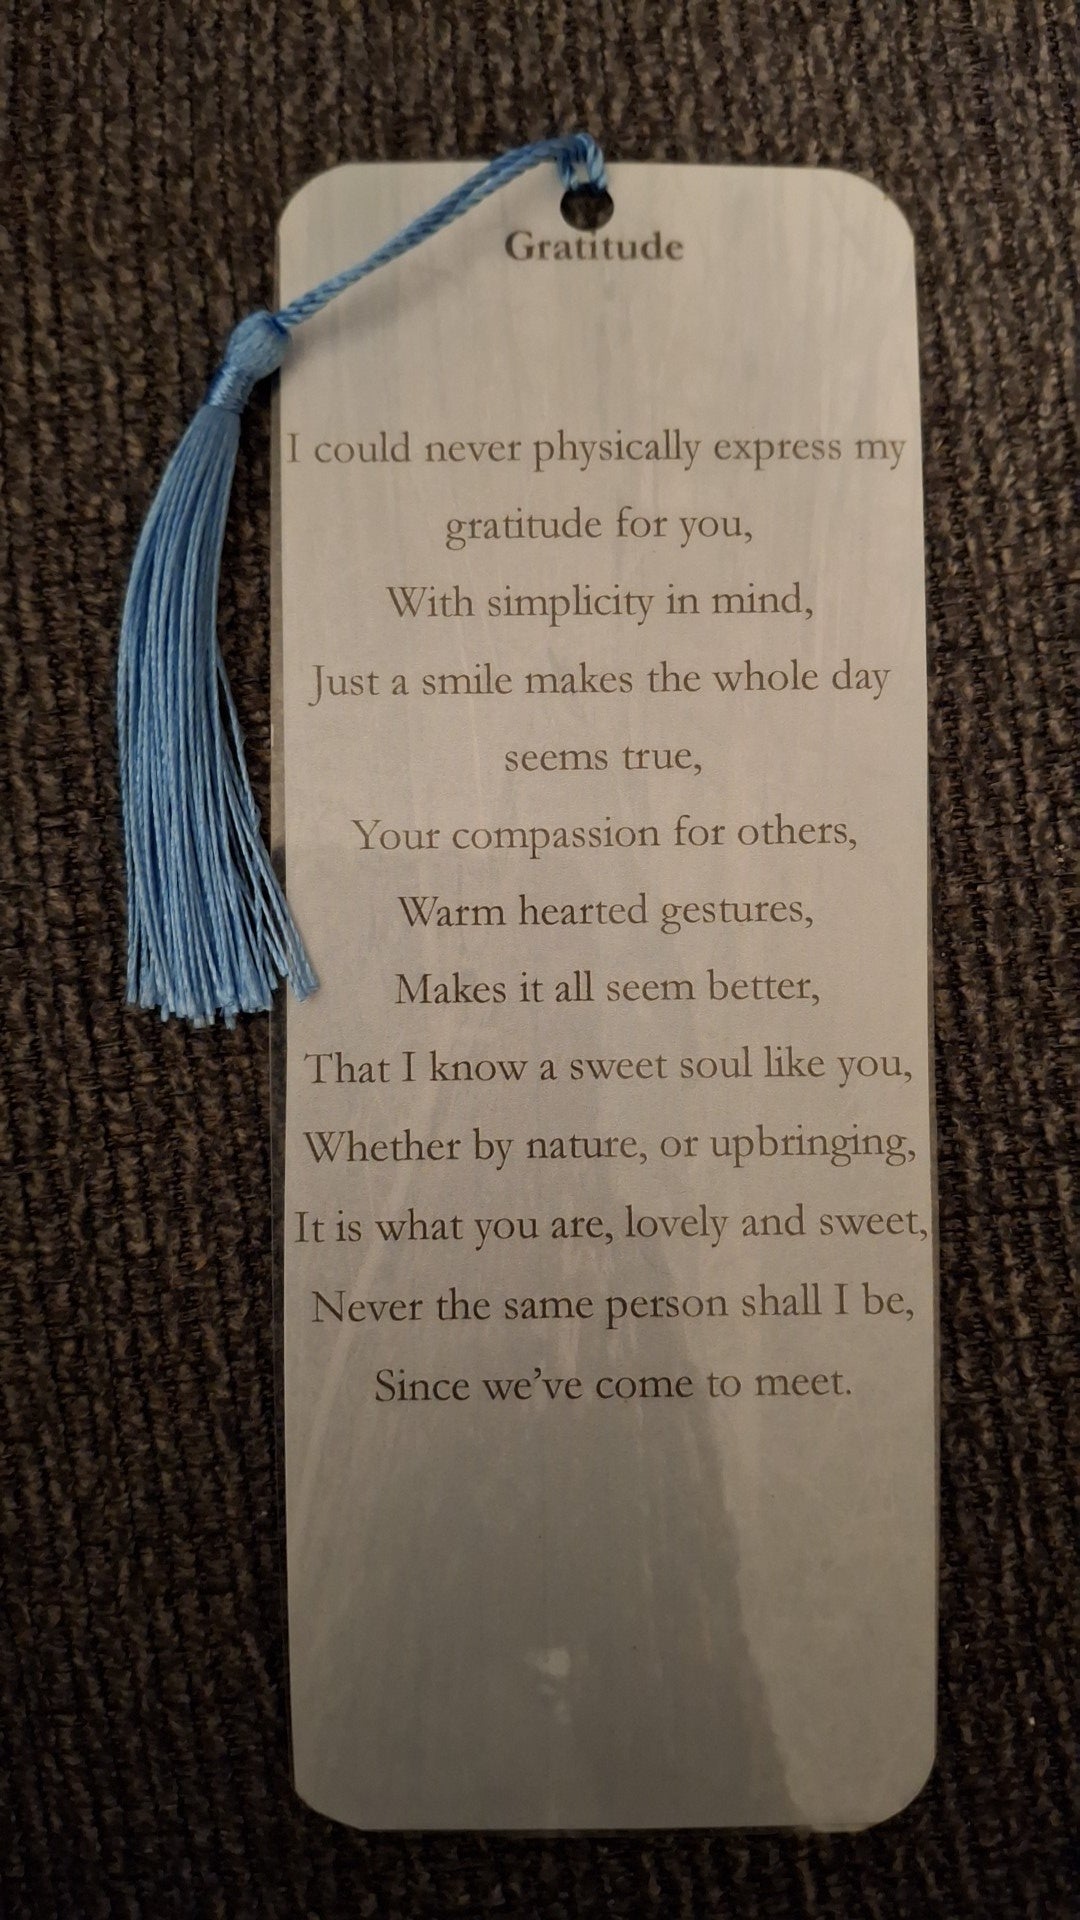 Gratitude
I could never physically express my
gratitude for you,
With simplicity in mind,
Just a smile makes the whole day
seems true,
Your compassion for others,
Warm hearted gestures,
Makes it all seem better,
That I know a sweet soul like you,
Whether by nature, or upbringing,
It is what you are, lovely and sweet,
Never the same person shall I be,
Since we’ve come to meet.